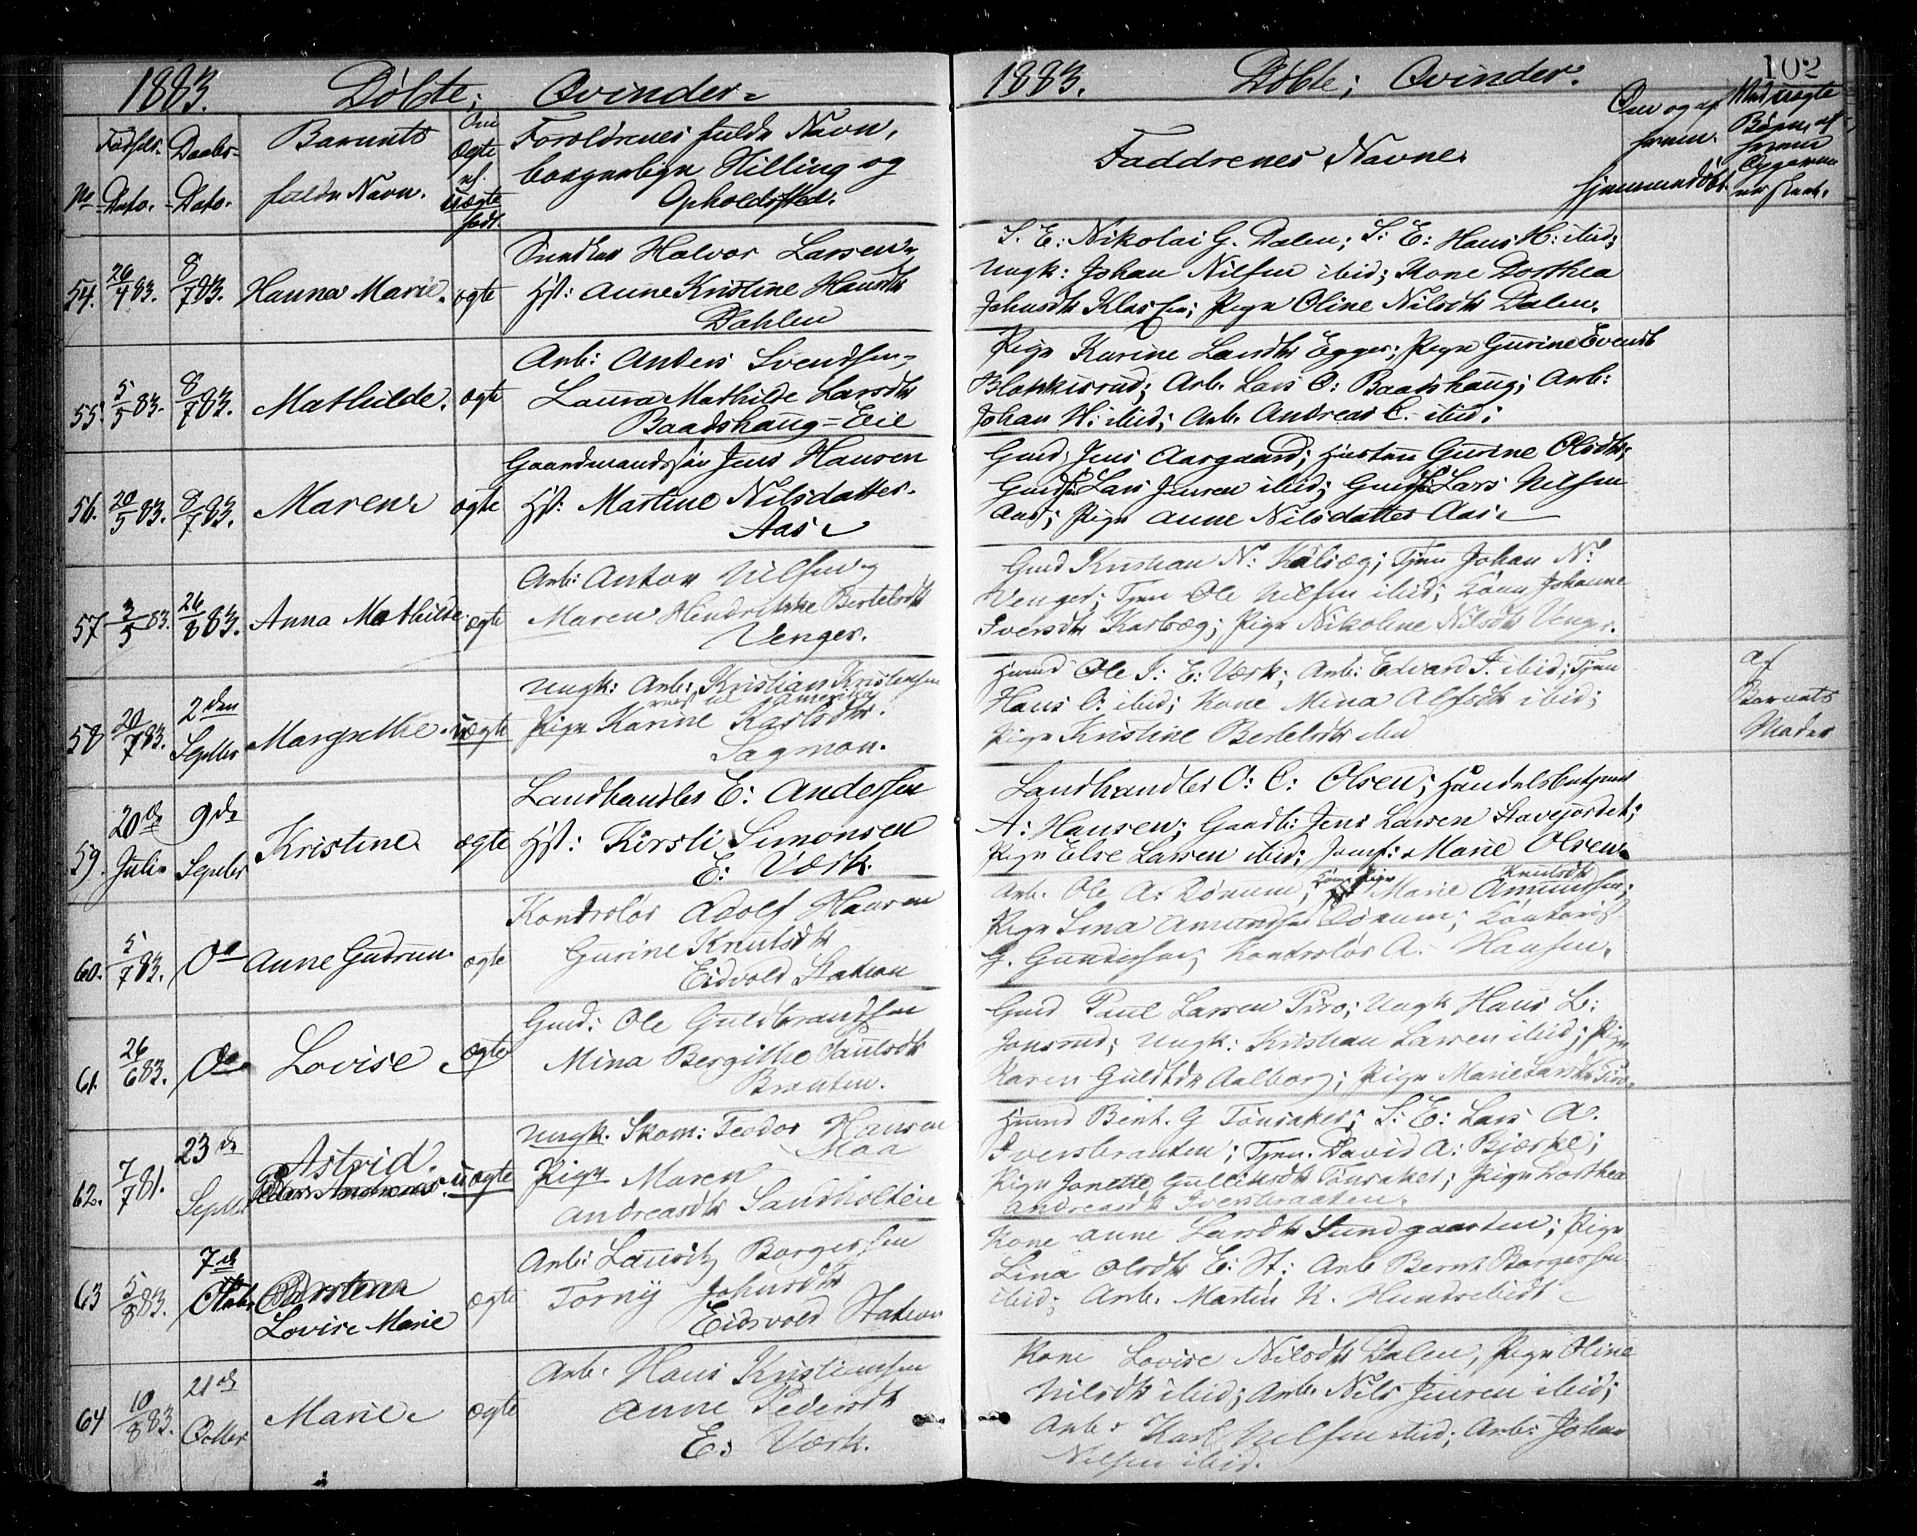 1883. Døbte; Qvinder.
No
Fødsels-
Dato.
Daabs-
Dato.
Barnets
fulde Navn.
Om
Ægte
el.
uægte
født.
Forældrenes fulde Navn,
borgerlige Stilling og
Opholdssted.
54. 26/4 83. 8/7 83. Hanna Marie. ægte
Halvor Larsen
Hst: Anne Kristine Hansdtr
Dahlen
55. 5/5 83. 8/7 83. Mathilde. ægte
Arb: Anders Svendsen
Laura Mathilde Larsdtr
Baadshaug-Eie
56. 20/5 83. 8/7 83. Maren ægte
Gaardmandssøn Jens Hansen
Hst: Martine Nilsdatter
Aas
57 3/5 83. 26/8 83. Anna Mathilde ægte
Arb: Anton Nilsen
Maren Hendrikke Bertelsdtr
Venger.
58 20/7 83. 2den Septbr Margrethe. uægte
Ungk: Arb: Kristian Kristensen
reist til Amerika
Pige Karine Karlsdtr.
Sagmon.
59. 20de Juli 9de Septbr Kristine ægte
Landhandler E: Andersen
Hst: Kirsti Simonsen
E: Værk.
60. 5/7 83. Do Anne Gudrun ægte
Kontrolør Adolf Hansen
Gurine Knutsdtr
Eidvold Station
61. 26/6 83. Do Lovise ægte
Gmd: Ole Guldbrandsen
Mina Bergithe Paulsdtr
Braaten.
62. 7/7 81. 23de Septbr Astrid. uægte
Ungk. Skom: Teodor Hansen
Maa
Pige Maren
Andreasdtr Sandholteie
63 5/8 83. 7de Oktbr
Lovise Marie ægte
Arb: Lauritz Borgersen
Torny Johnsdtr
Eidsvold Station
64 10/8 83. 21de Octbr Marie ægte
Arb: Hans Kristiansen
Anne Pedersdtr
E: Værk.
1883. Døbte; Qvinder. 102
Faddrenes Navne.
Om og af
hvem
hjemmedøbt.
Ved uægte
Børn, af
hvem
Opgaven
er skeet.
S. E: Nikolai G. Dalen; S: E: Hans H: ibid;
Ungk: Johan Nilsen ibid; Kone Dorthea
Johnsdtr; Pige Oline Nilsdtr Dalen.
Pige Karine Larsdtr Egger; Pige Gurine Evensdtr
Blakkisrud; Arb. Lars O: Baadshaug; Arb:
Johan H: ibid; Arb. Andreas C. ibid;
Gmd. Jens Aargaard; Hustru Gurine Olsdtr;
Gmds Lars Jensen ibid; Gmds Lars Nilsen
Aas; Pige Anne Nilsdatter Aas
Gmd Kristian N:; Tjen Johan N:
Venger; Tjen Ole Nilsen ibid; Kone Johanne
Iversdtr; Pige Nikoline Nilsdtr Venger.
Hmd Ole J: E: Værk; Arb: Edvard J. ibid; Tjen
Hans O: ibid; Kone Mina Alfsdtr ibid;
Pige Kristine Bertelsdtr ibid
af
Barnets
Moder
Landhandler O: C: Olsen; Handelsbetjent
A: Hansen; Gaardb: Jens Larsen Stavejordet;
Pige Else Larsen ibid; Jomf: Marie Olsen
Arb. Ole A: Rönum; Marie Knutsdtr Amundsen;
Pige Lina Amundsen Rönum; Kontorist
G. Gundersen; Kontrolør A. Hansen.
Gmd Paul Larsen Piro; Ungk Hans L:
Jonsrud; Ungk: Kristian Larsen ibid; Pige
Karen Guldbdtr Aalborg; Pige Marie Larsdtr Piro
Hmd Bent. G Tönsaker; S: E: Lars A:
Iversbraaten; Tjen. David A: Bjørke;
Pige Jonette Gulliksdtr Tönsaker; Pige Dorthea
Andreasdtr Iversbraaten.
Kone Anne Larsdtr Sundgaarden; Pige
Lina Olsdtr E: St; Arb Bernt Borgersen
ibid; Arb. Martin K.
Kone Lovise Nilsdtr Dalen, Pige Oline
Nilsdtr ibid; Arb. Nils Jensen ibid;
Arb: Karl Nilsen ibid; Arb: Johan
Nilsen ibid.